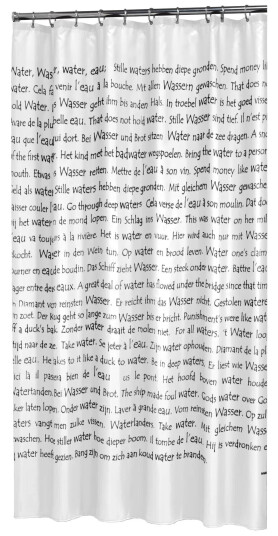 Water, water, eau, Stille waters hebben diepe gronden. Spend money
water. Cela venir l'eau à la bouche. Mit allen Wassern gewaschen. That does
hold Water. Wasser geht ihm bis anden Hals. In troebel water is het goed
belle eau. That does not hold water. Stille Wasser sind tief. Il n'est
que l'eau dort. Bei Wasser und Brot sitzen. Water naar de zee dragen. A
of the first water. Het kind met het badwater wegpoelen. Bring the water to a person
mouth. Etwas Wasser reiten. Mettre de l'eau à son vin. Spend money like water
Geld als water Stille waters hebben diepe gronden. Mit gleichem Wasser gewaschen
couler l'eau. Go through deep waters Cela verse de l'eau à son moulin. Dat
het water in de mond lopen. Ein Schlag ins Wasser. This was water on her mill
eau va toujours à la rivière. Het is water en vuur. Hier wird auch nur mit Wasser
kocht. Water in den Wein tun. Op water en brood leven. Water one's
eau de boudin. Das Schiff zieht Wasser. Een steek onder water. Battre l'eau
nager entre deux eaux. A great deal of water has flowed under the bridge since that time
Diamant von reinsten Wasser. Er reicht ihm das Wasser nicht. Gestolen wateren
zoet. Der Krug geht so lange zum Wasser bis er bricht. Punishment's were like water
off a duck's bak. Zonder water draait de molen niet. For all waters. Water
tijd naar de ze. Take water. Se jeter à l'eau. Zijn water ophouden. Diamant de la
belle eau. He akes to it like a duck to water. Be in deep waters. Er liest wie Wasser
ici là il passera bien de l'eau us le pont. Het hoofd boven water houden
Watertanden. Bei Wasser und Brot. The ship made foul water. Gods water over
laten lopen. Onder water zijn. Laver à grande eau. Vom reinsten Wasser. Op
waters vangt men zulke vissen. Waterlanders. Take water. Mit gleichem Wasser
gewaschen. Hoe stiller water hoe dieper boom. Il tombe de l'eau. Hij is verdronken
water heeft gezien. Bang zijn om zich aan koud water te branden.